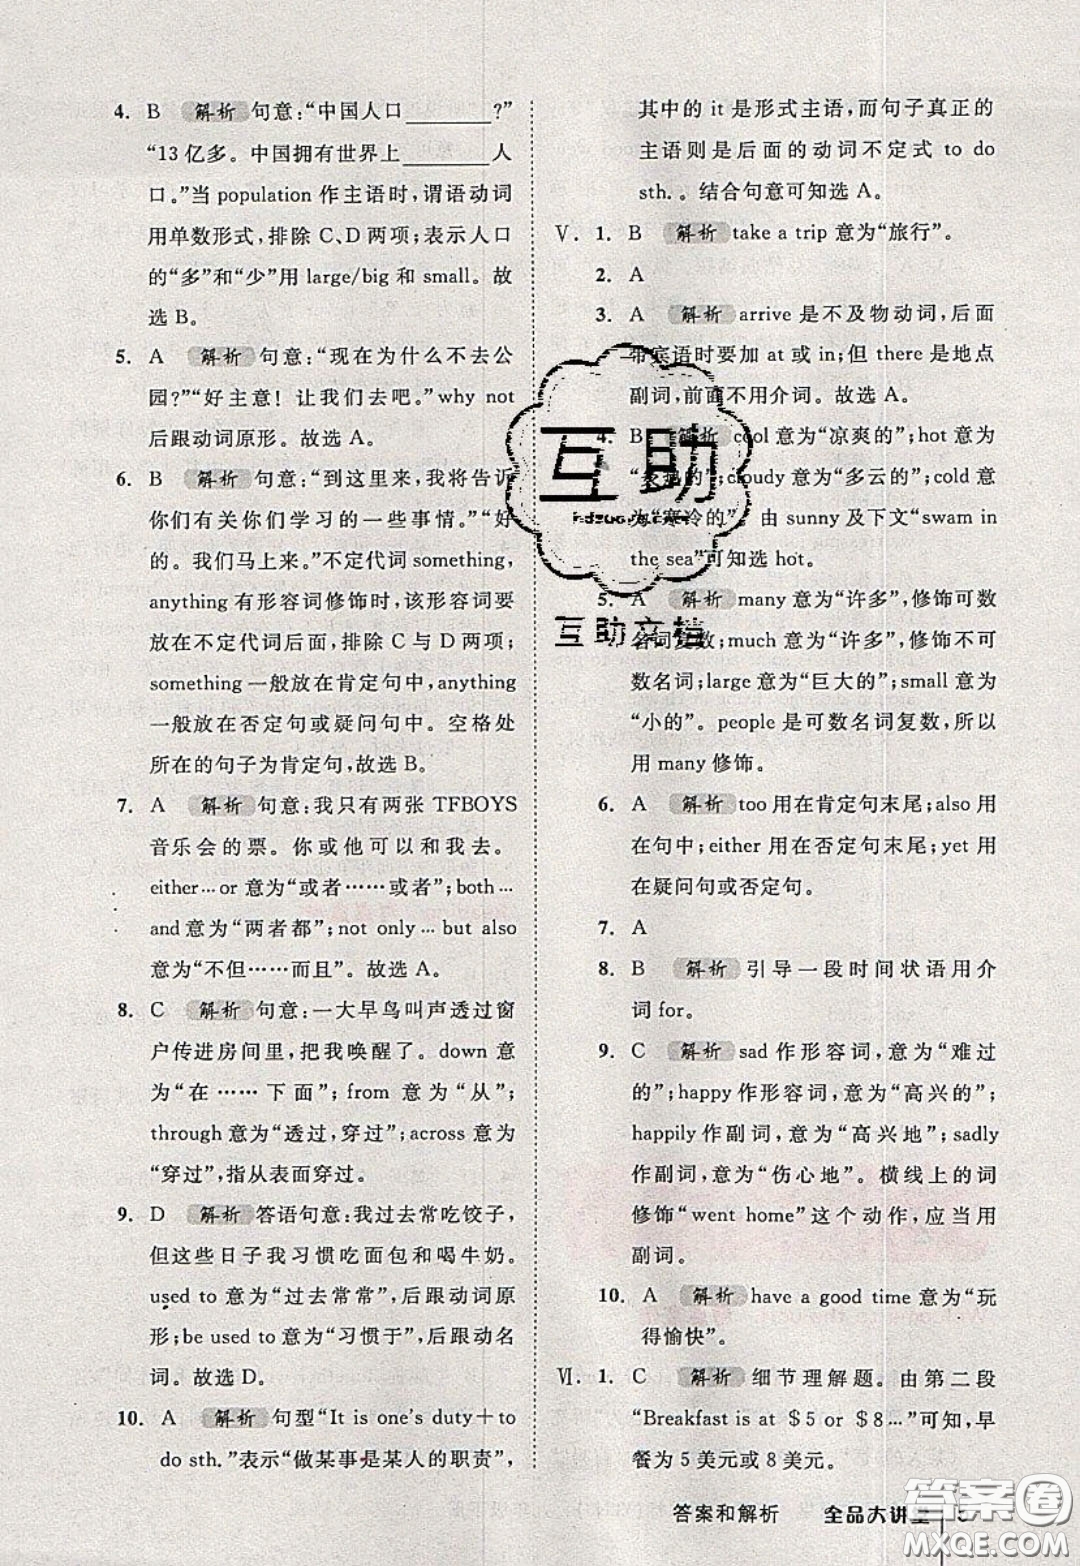 4. B 解析 句意：“中国人口________?”
“13 亿多。中国拥有世界上________人
口。”当 population 作主语时，谓语动词
用单数形式，排除 C、D 两项；表示人口
的“多”和“少”用 large/big 和 small。故
选 B。
5. A 解析 句意：“现在为什么不去公
园?”“好主意！让我们去吧。”why not
后跟动词原形。故选 A。
6. B 解析 句意：“到这里来，我将告诉
你们有关你们学习的一些事情。”“好
的。我们马上来。”不定代词 something,
anything 有形容词修饰时，该形容词要
放在不定代词后面，排除 C 与 D 两项；
something 一般放在肯定句中，anything
一般放在否定句或疑问句中。空格处
所在的句子为肯定句，故选 B。
7. A 解析 句意：我只有两张 TFBOYS
音乐会的票。你或他可以和我去。
either…or 意为“或者……或者”；both…
and 意为“两者都”；not only… but also
意为“不但……而且”。故选 A。
8. C 解析 句意：一大早鸟叫声透过窗
户传进房间里，把我唤醒了。down 意
为“在……下面”；from 意为“从”；
through 意为“透过，穿过”；across 意为
“穿过”，指从表面穿过。
9. D 解析 答语句意：我过去常吃饺子，
但这些日子我习惯吃面包和喝牛奶。
used to 意为“过去常常”，后跟动词原
形；be used to 意为“习惯于”，后跟动名
词。故选 D。
10. A 解析 句型“It is one's duty＋to
do sth.”表示“做某事是某人的职责”，
其中的 it 是形式主语，而句子真正的
主语则是后面的动词不定式 to do
sth.。结合句意可知选 A。
Ⅴ. 1. B 解析 take a trip 意为“旅行”。
2. A
3. A 解析 arrive 是不及物动词，后面
带宾语时要加 at 或 in；但 there 是地点
副词，前面不用介词。故选 A。
4. B 解析 cool 意为“凉爽的”；hot 意为
“炎热的”；cloudy 意为“多云的”；cold 意
为“寒冷的”。由 sunny 及下文“swam in
the sea”可知选 hot。
5. A 解析 many 意为“许多”，修饰可数
名词复数；much 意为“许多”，修饰不可
数名词；large 意为“巨大的”；small 意为
“小的”。people 是可数名词复数，所以
用 many 修饰。
6. A 解析 too 用在肯定句末尾；also 用
在句中；either 用在否定句末尾；yet 用
在疑问句或否定句。
7. A
8. B 解析 引导一段时间状语用介
词 for。
9. C 解析 sad 作形容词，意为“难过
的”；happy 作形容词，意为“高兴的”；
happily 作副词，意为“高兴地”；sadly
作副词，意为“伤心地”。横线上的词
修饰“went home”这个动作，应当用
副词。
10. A 解析 have a good time 意为“玩
得愉快”。
Ⅵ. 1. C 解析 细节理解题。由第二段
“Breakfast is at ＄5 or ＄8…”可知，早
餐为 5 美元或 8 美元。
互助
互助文档
答案和解析 全品大讲堂
答案圈
MXQE.COM